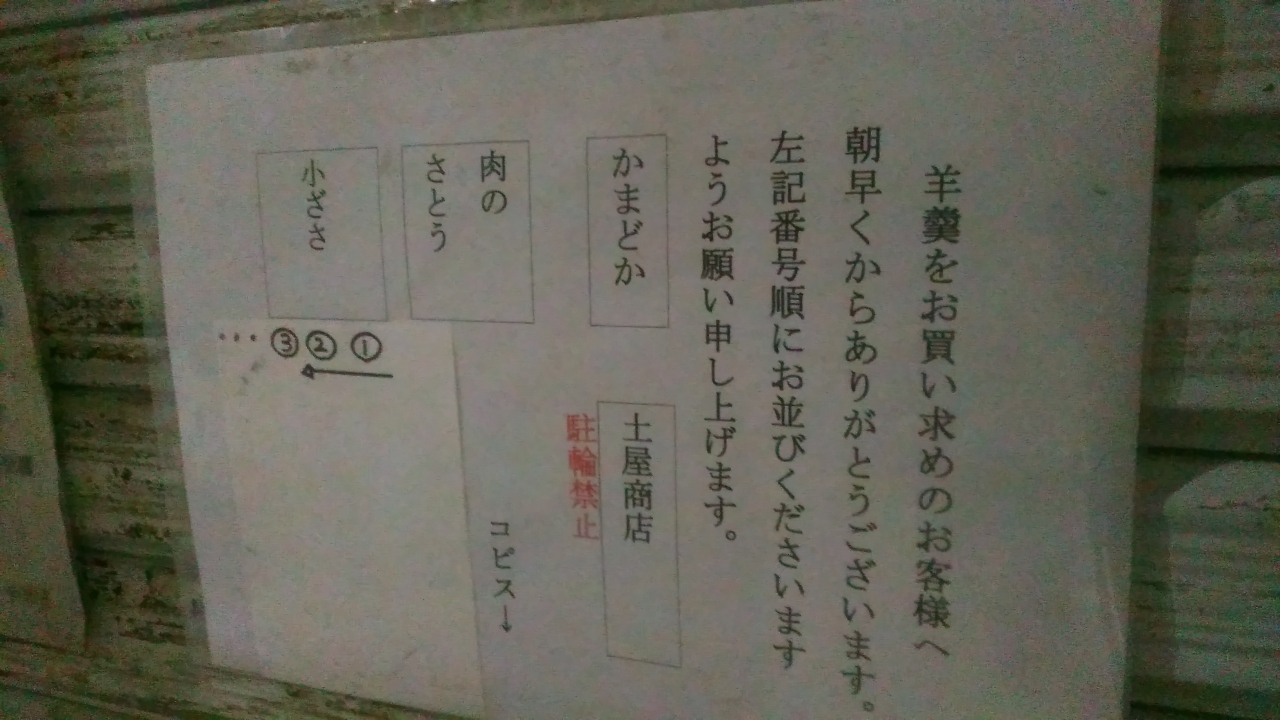 羊羹をお買い求めのお客様へ
朝早くからありがとうございます。
左記番号順にお並びくださいます
ようお願い申し上げます。
かまどか
土屋商店
駐輪禁止
肉の
さとう
コピス↓
小ざさ
①②③・・・